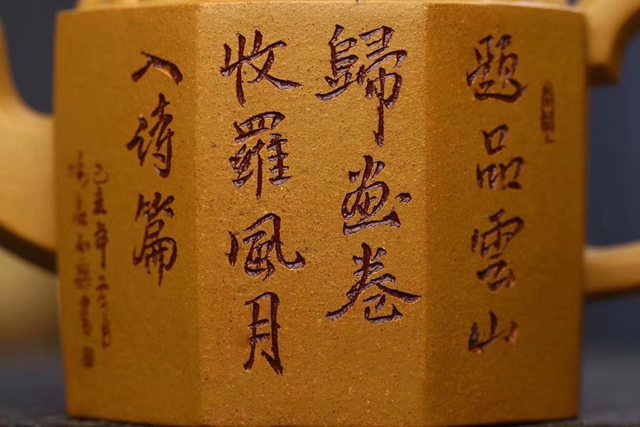 題品雲山
歸畫卷
收羅風月
入诗篇
己亥年